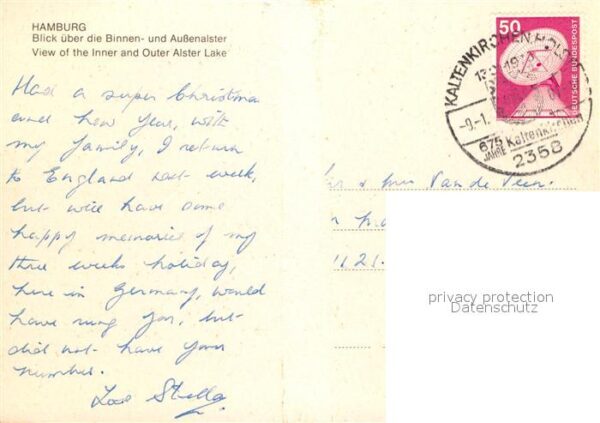 HAMBURG
Blick über die Binnen- und Außenalster
View of the Inner and Outer Alster Lake
Had a super Christmas
and new Year, with
my family, I return
to England next week,
but will have some
happy memories of my
three weeks holiday,
here in Germany, would
have rung you, but
did not have your
number.
Love Stella
50
DEUTSCHE BUNDESPOST
KALTENKIRCHEN, HOLST
1312 - 197
-9.-1.
675 JAHRE Kaltenkirchen
2358
Mr & Mrs Van de Veen.
1121.
privacy protection
Datenschutz